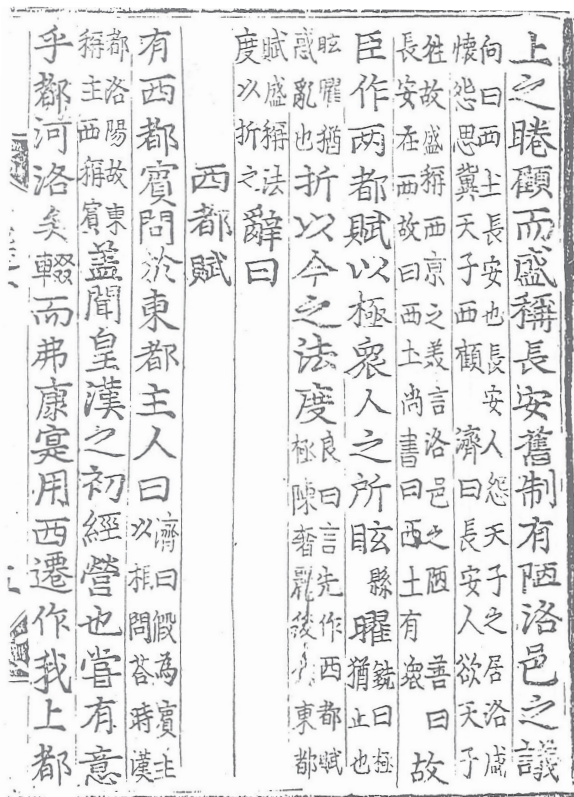 上之睠顧而盛稱長安舊制有陋洛邑之議
向曰西土長安也長安人怨天子之居洛咸
懷怨思冀天子西顧 濟曰長安人欲天子
徃故盛稱西京之美言洛邑之陋 善曰
長安在西故曰西土尚書曰西土有衆 故
臣作兩都賦以極衆人之所眩縣曜銑曰極猶止也
眩曜猶惑亂也折以今之法度良曰言先作西都賦極陳奢麗後東都
賦盛稱法度以折之辭曰
西都賦
有西都賓問於東都主人曰濟曰假為賓主以相問荅時漢
都洛陽故東稱主西稱賓蓋聞皇漢之初經營也嘗有意
乎都河洛矣輟而弗康寔用西遷作我上都